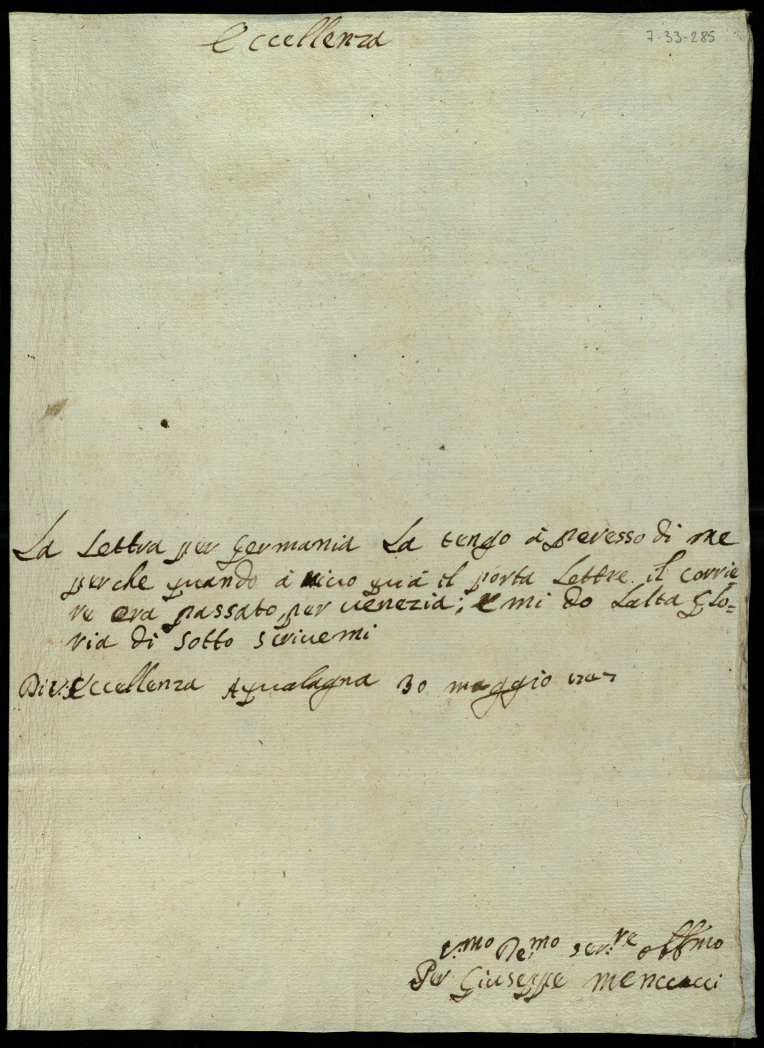 Eccellenza
7-33-285
La Lettra per Germania La tengo à peresso di me
perche quando à qua il porta Lettre il corrie
re era passato per uenezia; e mi do Lalta Glo=
ria di sotto scriuemi
Di V: Eccellenza Aqualagna 30 maggio
V:mo De:mo ser:re obbmo
Per Giuseppe Menccacci